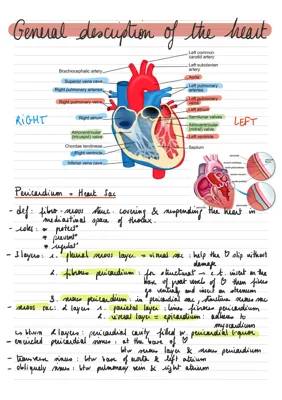 General description of the heart
Left common
carotid artery
Left subclavian
artery
Brachiocephalic artery
Aorta
Superior vena cava
Left pulmonary
arteries
Right pulmonary arteries
Left pulmonary
veins
Right pulmonary veins
Left atrium
Semilunar valves
Right atrium
RiGHT
LEFT
Atrioventricular
(mitral) valve
Atrioventricular
(tricuspid) valve
Left ventricle
Chordae tendineae
Septum
Right ventricle
Inferior vena cava
Pericardium = Heart Sac
- def: fibro-serous struc. covering & suspending the heart in
mediastinal space of thorax.
- roles: * protect
* prevent
* regulate
- 3 layers: 1. serous layer = visceral sac: help the slip without
damage
2. fibrous pericardium: for structural insert on the
base of great vessels of them fibres
go ventrally and insert on sternum
3. serous pericardium: in pericardial sac, structure serous sac
serous sac: 2 layers: 1. parietal layer: lines fibrous pericardium
2. visceral layer = epicardium: adheres to
myocardium
btwn 2 layers: pericardial cavity filled w. pericardial liquor
- encircled pericardial sinuses: at the base of
btw serous layer & serous pericardium
- transverse sinus: btw base of aorta & left atrium
- obliquely sinus: btw pulmonary vein & right atrium